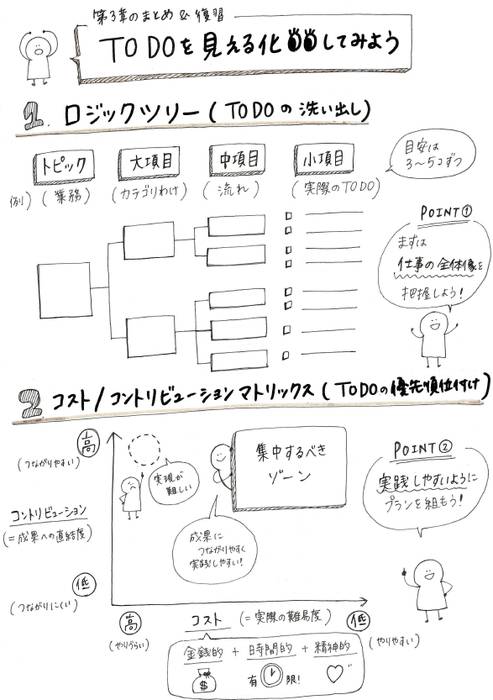 第3章のまとめ&復習
TO DOを見える化してみよう
1. ロジックツリー(TO DOの洗い出し)
トピック 大項目 中項目 小項目
例) (業務) (カテゴリわけ) (流れ) (実際のTO DO)
目安は
3〜5コずつ
POINT①
まずは
仕事の全体像を
把握しよう!
2 コスト/コントリビューションマトリックス(TO DOの優先順位付け)
高
(つながりやすい)
コントリビューション
(=成果への直結度)
低
(つながりにくい)
実現が
難しい
集中するべき
ゾーン
成果に
つながりやすく
実践しやすい!
POINT②
実践しやすいように
プランを組もう!
高
(やりづらい)
コスト (=実際の難易度)
低
(やりやすい)
金銭的 + 時間的 + 精神的
$ 有限!